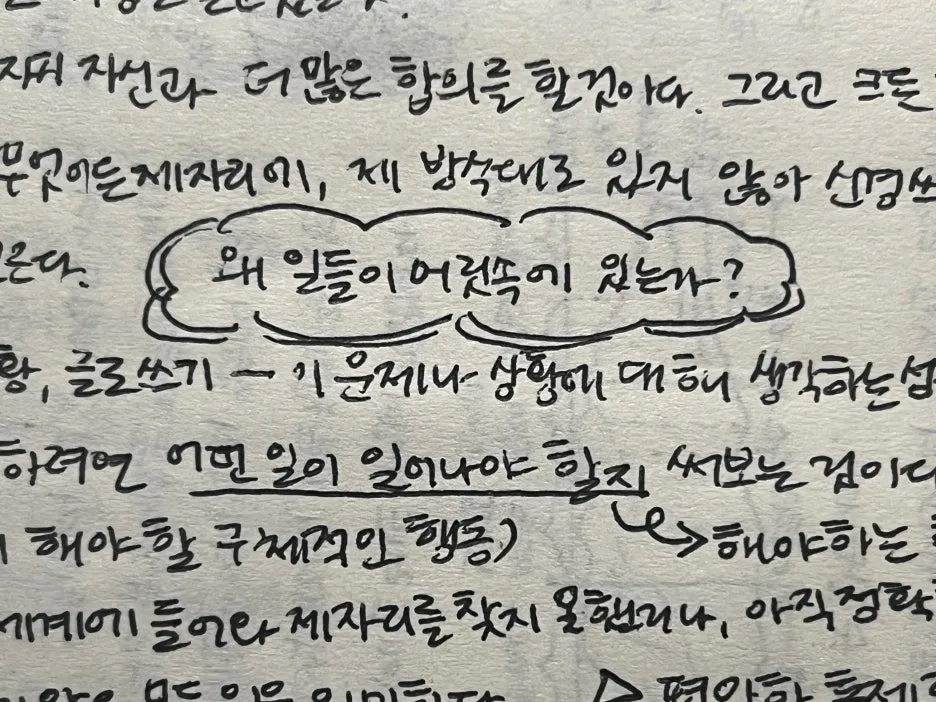 자신과 더 많은 합의를 할것이다. 그리고 크든
무엇이든제자리에, 제 방식대로 있지 않아 신경쓰
른다.
왜 일들이 머릿속에 있는가?
황, 글로쓰기 → 기 문제나 상황에 대해 생각하는
하려면 어떤 일이 일어나야 할지 써보는 것이다
해야할 구체적인 행동)
해야하는
세계에 들어와 제자리를 찾지 못했거나, 아직 정확
모든 일을
▷ 편안한 통제